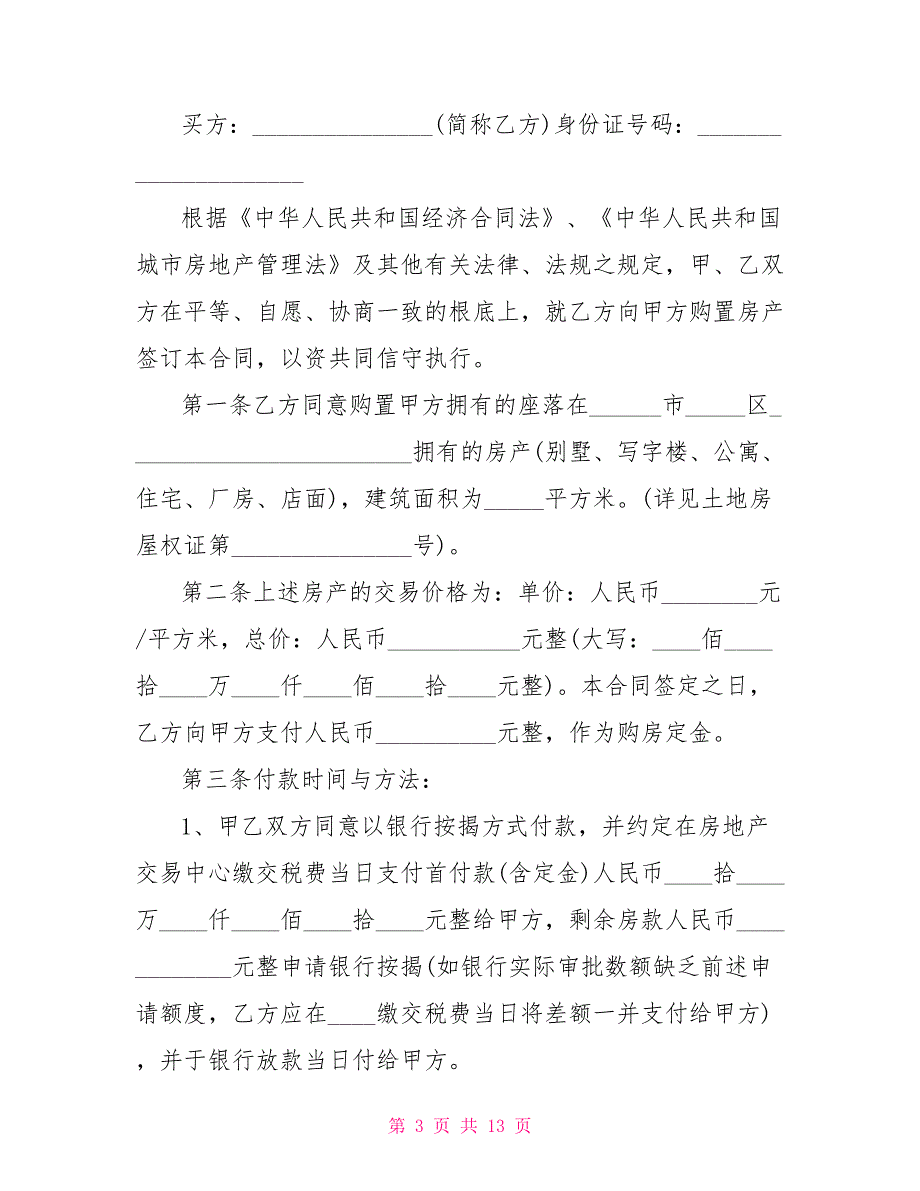 买方：_______________(简称乙方)身份证号码：_______
______________
根据《中华人民共和国经济合同法》、《中华人民共和国
城市房地产管理法》及其他有关法律、法规之规定，甲、乙双
方在平等、自愿、协商一致的根底上，就乙方向甲方购置房产
签订本合同，以资共同信守执行。
第一条乙方同意购置甲方拥有的座落在______市_____区_
_______________________拥有的房产(别墅、写字楼、公寓、
住宅、厂房、店面)，建筑面积为_____平方米。(详见土地房
屋权证第_______________号)。
第二条上述房产的交易价格为：单价：人民币________元
/平方米，总价：人民币___________元整(大写：____佰____
拾____万____仟____佰____拾____元整)。本合同签定之日，
乙方向甲方支付人民币__________元整，作为购房定金。
第三条付款时间与方法：
1、甲乙双方同意以银行按揭方式付款，并约定在房地产
交易中心缴交税费当日支付首付款(含定金)人民币____拾____
万____仟____佰____拾____元整给甲方，剩余房款人民币____
________元整申请银行按揭(如银行实际审批数额缺乏前述申
请额度，乙方应在____缴交税费当日将差额一并支付给甲方)
，并于银行放款当日付给甲方。
第 3 页 共 13 页